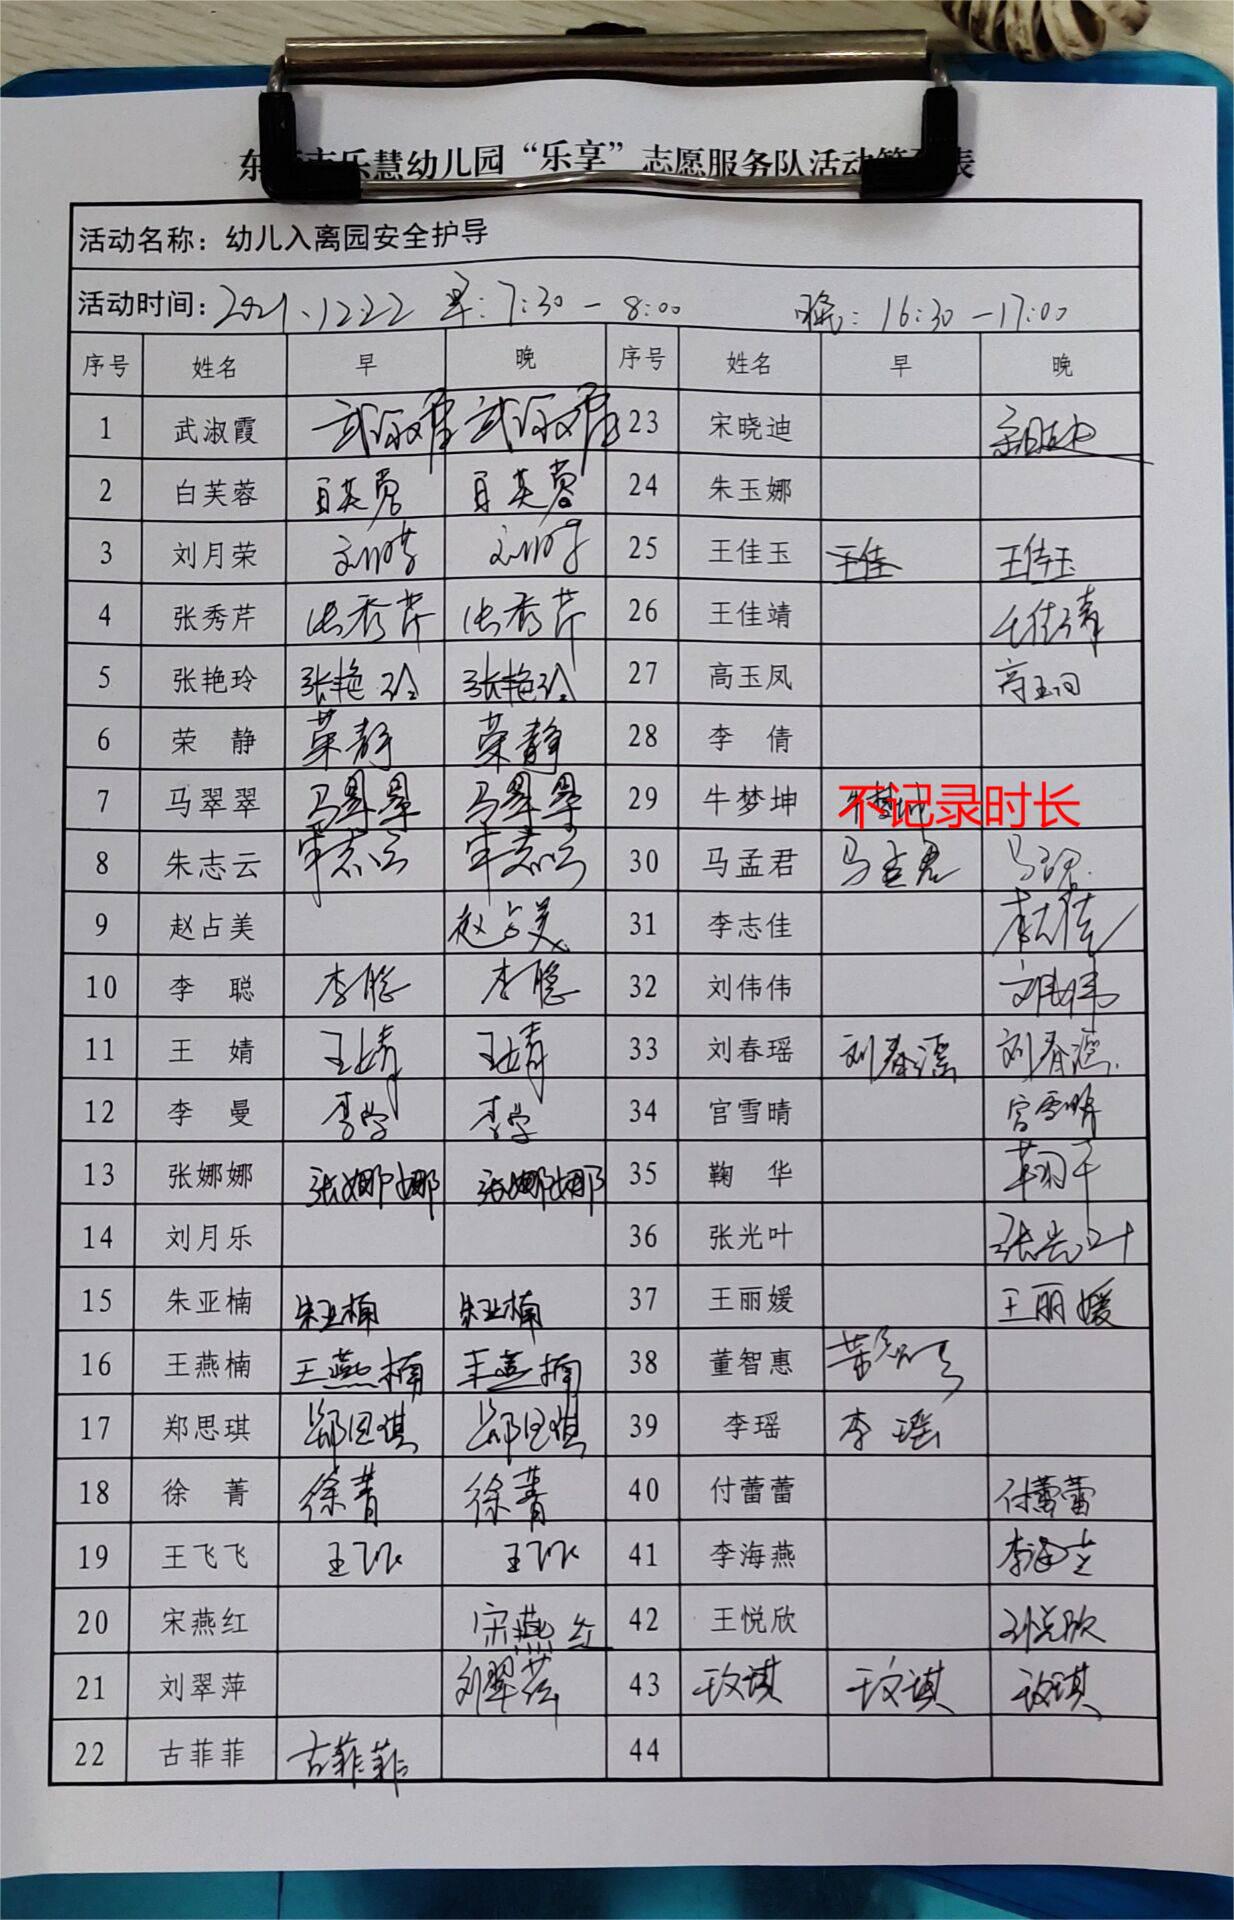 乐慧幼儿园“乐享”志愿服务队活动
活动名称：幼儿入离园安全护导
活动时间：2021.12.22 早：7:30－8:00 晚：16:30－17:00
序号 姓名 早 晚 序号 姓名 早 晚
1 武淑霞 武淑霞 武淑霞 23 宋晓迪 宋晓迪
2 白芙蓉 白芙蓉 白芙蓉 24 朱玉娜
3 刘月荣 刘月荣 刘月荣 25 王佳玉 王佳 王佳玉
4 张秀芹 张秀芹 张秀芹 26 王佳靖 王佳靖
5 张艳玲 张艳玲 张艳玲 27 高玉凤 高玉凤
6 荣 静 荣静 荣静 28 李 倩
7 马翠翠 马翠翠 马翠翠 29 牛梦坤 牛梦坤 不记录时长
8 朱志云 朱志云 朱志云 30 马孟君 马孟君 马孟君
9 赵占美 赵占美 31 李志佳 李志佳
10 李 聪 李聪 李聪 32 刘伟伟 刘伟伟
11 王 婧 王婧 王婧 33 刘春瑶 刘春瑶 刘春瑶
12 李 曼 李曼 李曼 34 宫雪晴 宫雪晴
13 张娜娜 张娜娜 张娜娜 35 鞠 华
14 刘月乐 36 张光叶 张光叶
15 朱亚楠 朱亚楠 朱亚楠 37 王丽媛 王丽媛
16 王燕楠 王燕楠 王燕楠 38 董智惠 董智惠
17 郑思琪 郑思琪 郑思琪 39 李瑶 李瑶
18 徐 菁 徐菁 徐菁 40 付蕾蕾 付蕾蕾
19 王飞飞 王飞飞 王飞飞 41 李海燕 李海燕
20 宋燕红 宋燕红 42 王悦欣 王悦欣
21 刘翠萍 刘翠萍 43 王玫琪 王玫琪 王玫琪
22 古菲菲 古菲菲 44